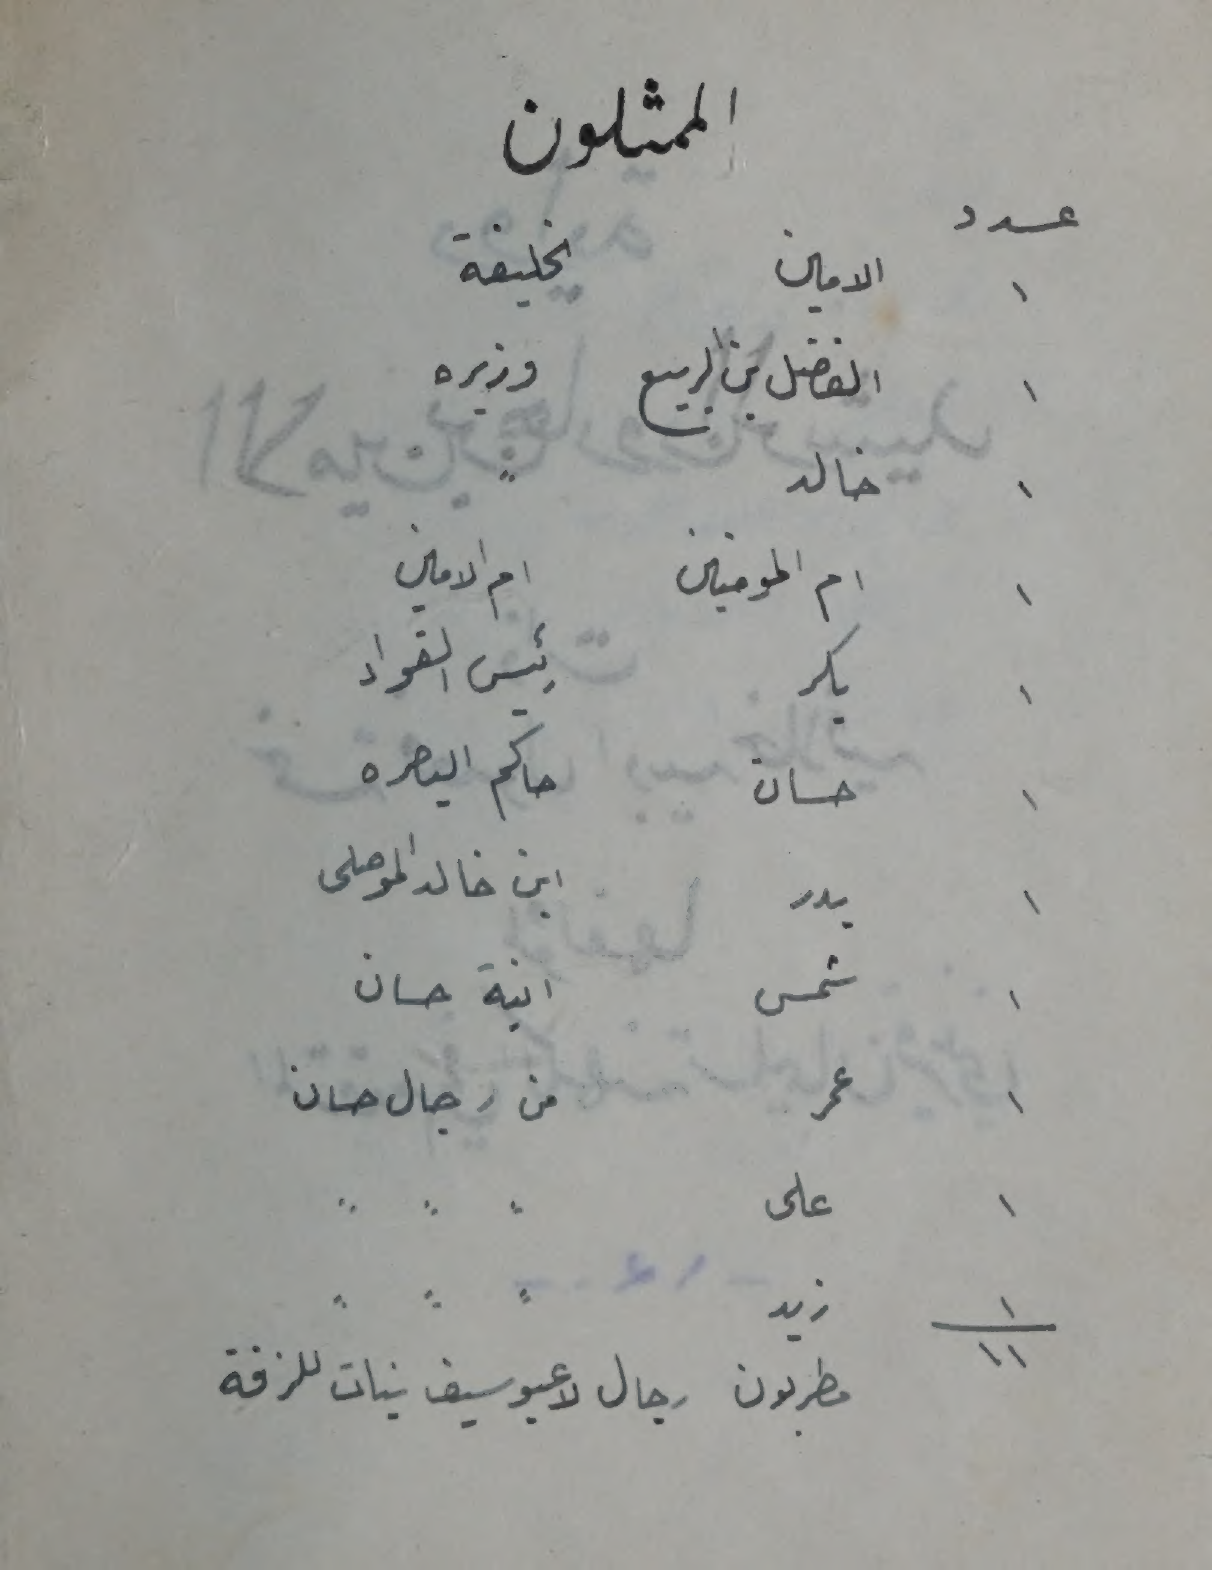 الممثلون
عدد
١ الامين الخليفة
١ الفضل بن الربيع وزيره
١ خالد "
١ ام المومنين ام الامين
١ بكر رئيس القواد
١ حسان حاكم البصره
١ بدر ابن خالد الموصلى
١ شمس ابنة حسان
١ عمر من رجال حسان
١ على " " "
١ زيد " " "
١١
مطربون رجال لاعبو سيف بنات للزفة